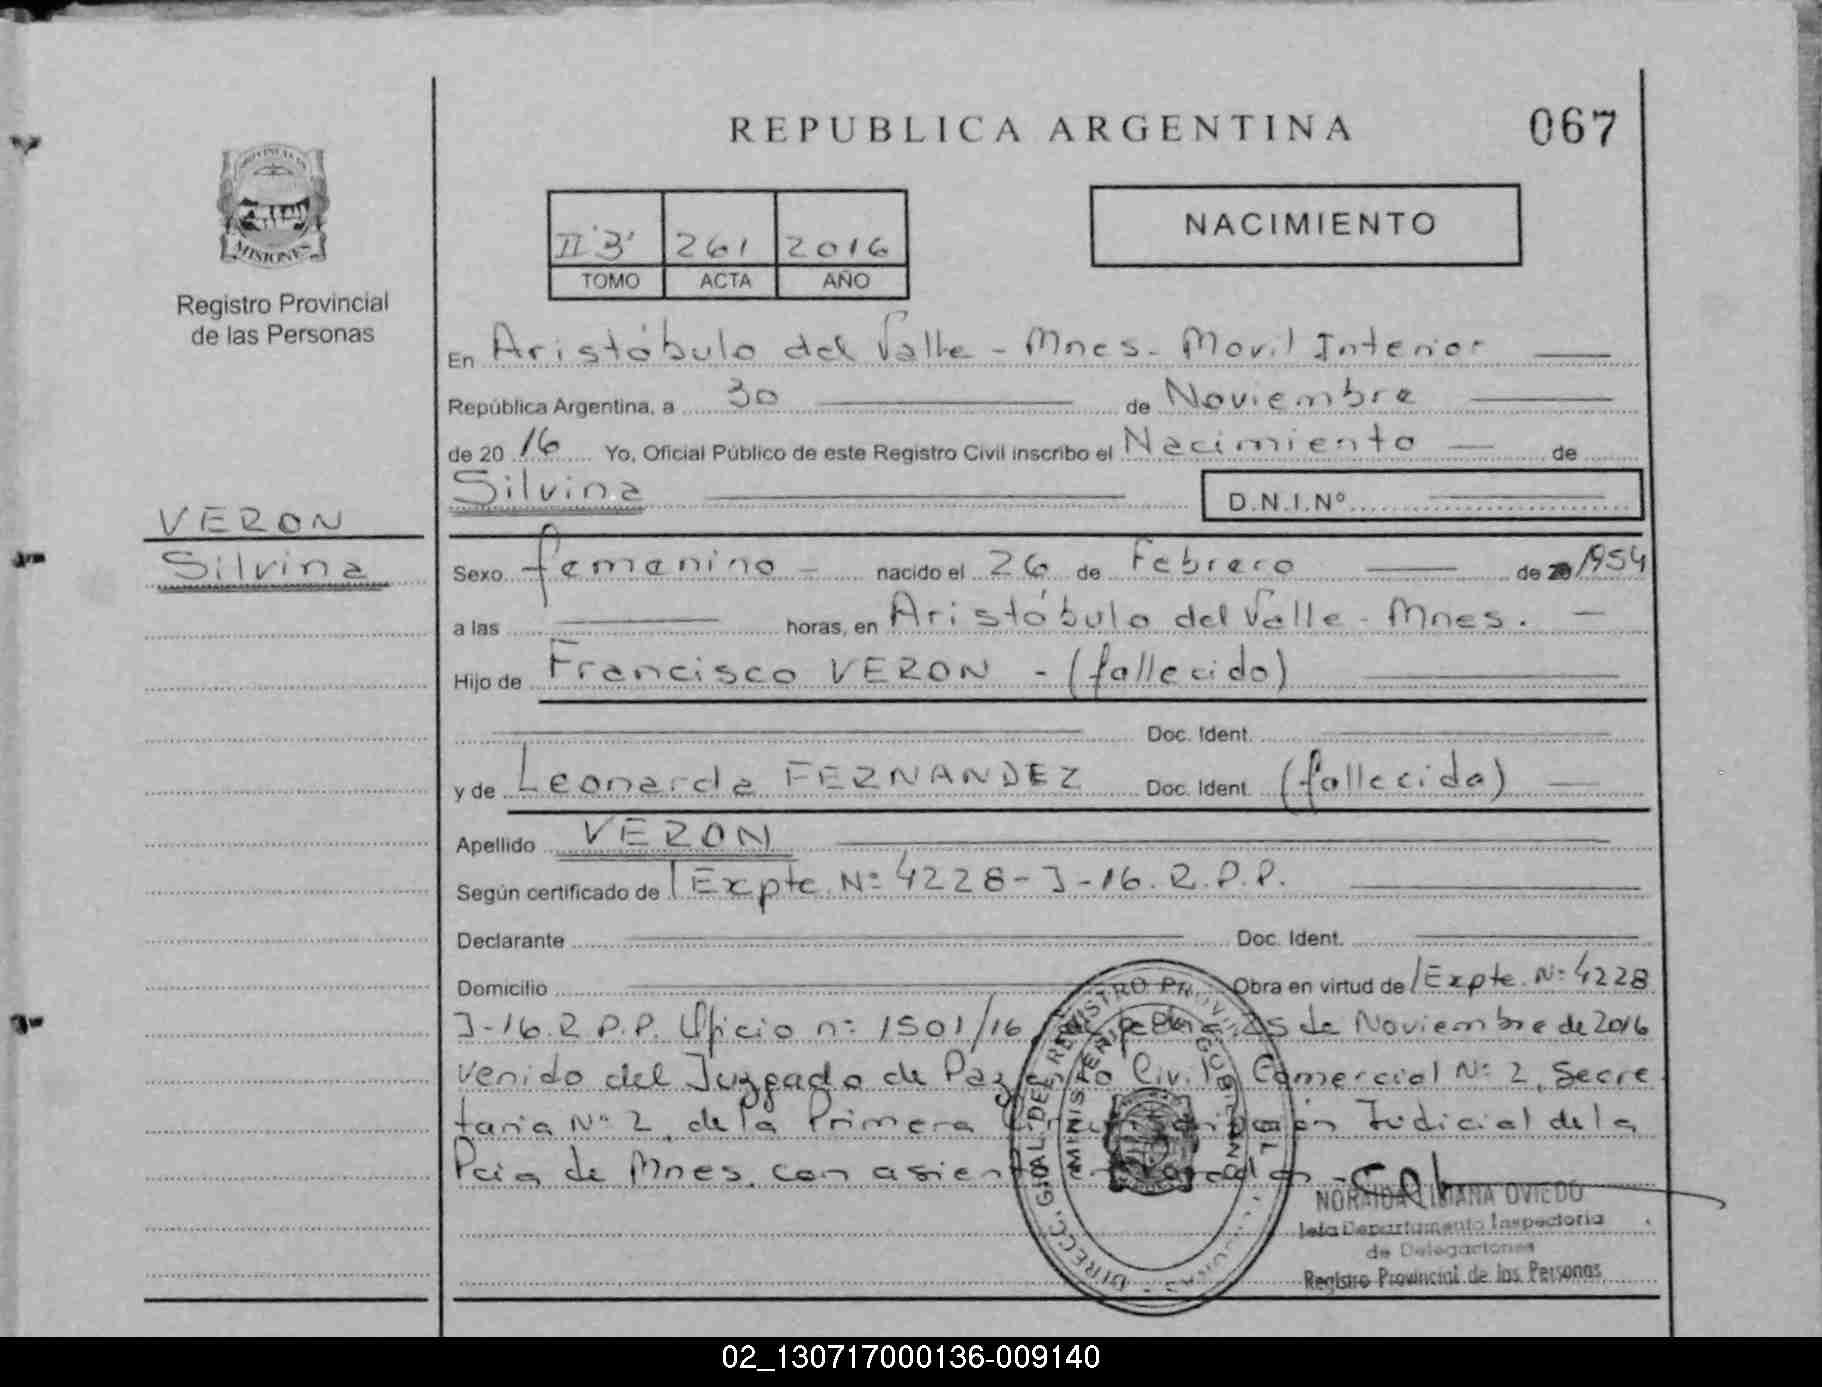 REPUBLICA ARGENTINA
067
PROVINCIA DE
MISIONES
Registro Provincial
de las Personas
II 'B' 261 2016
TOMO ACTA AÑO
NACIMIENTO
En Aristóbulo del Valle - Mnes - Movil Interior
República Argentina, a 30 de Noviembre
de 20 16 Yo, Oficial Público de este Registro Civil inscribo el Nacimiento de
Silvina D.N.I.Nº
VERON
Silvina
Sexo femenino - nacido el 26 de Febrero de 1954
a las horas, en Aristóbulo del Valle - Mnes. -
Hijo de Francisco VERON - (fallecido)
Doc. Ident.
y de Leonarda FERNANDEZ Doc. Ident. (fallecida)
Apellido VERON
Según certificado de Expte. Nº 4228-J-16. R.P.P.
Declarante Doc. Ident.
Domicilio Obra en virtud de Expte. Nº 4228
J-16. R.P.P. Oficio nº 1501/16 de fecha 25 de Noviembre de 2016
venido del Juzgado de Paz en lo Civil Comercial Nº 2, Secre
taria Nº 2, de la Primera Circunscripción Judicial de la
Pcia de Mnes. con asiento en Posadas -
DIRECC. GRAL. DEL REGISTRO PROVINCIAL
MINISTERIO GOBIERNO
NORAIDA LILIANA OVIEDO
Jefa Departamento Inspectoria
de Delegaciones
Registro Provincial de las Personas
02_130717000136-009140